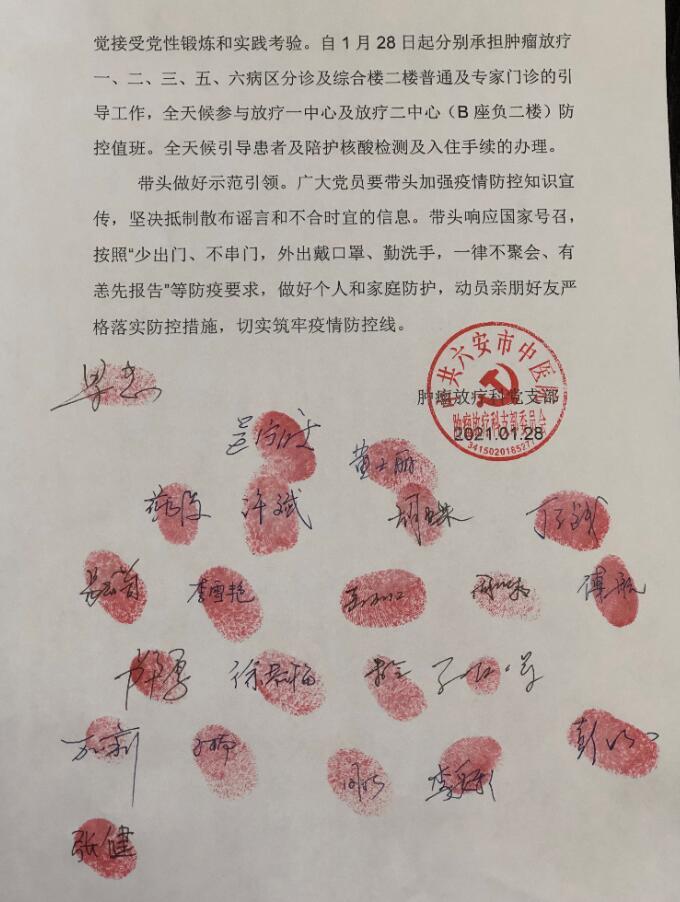 觉接受党性锻炼和实践考验。自1月28日起分别承担肿瘤放疗
一、二、三、五、六病区分诊及综合楼二楼普通及专家门诊的引
导工作，全天候参与放疗一中心及放疗二中心（B座负二楼）防
控值班。全天候引导患者及陪护核酸检测及入住手续的办理。
带头做好示范引领。广大党员要带头加强疫情防控知识宣
传，坚决抵制散布谣言和不合时宜的信息。带头响应国家号召，
按照“少出门、不串门，外出戴口罩、勤洗手，一律不聚会、有
恙先报告”等防疫要求，做好个人和家庭防护，动员亲朋好友严
格落实防控措施，切实筑牢疫情防控线。
中共六安市中医院
肿瘤放疗科党支部
肿瘤放疗科支部委员会
2021.01.28
3415020185271
许斌
李雪艳
傅航
张健